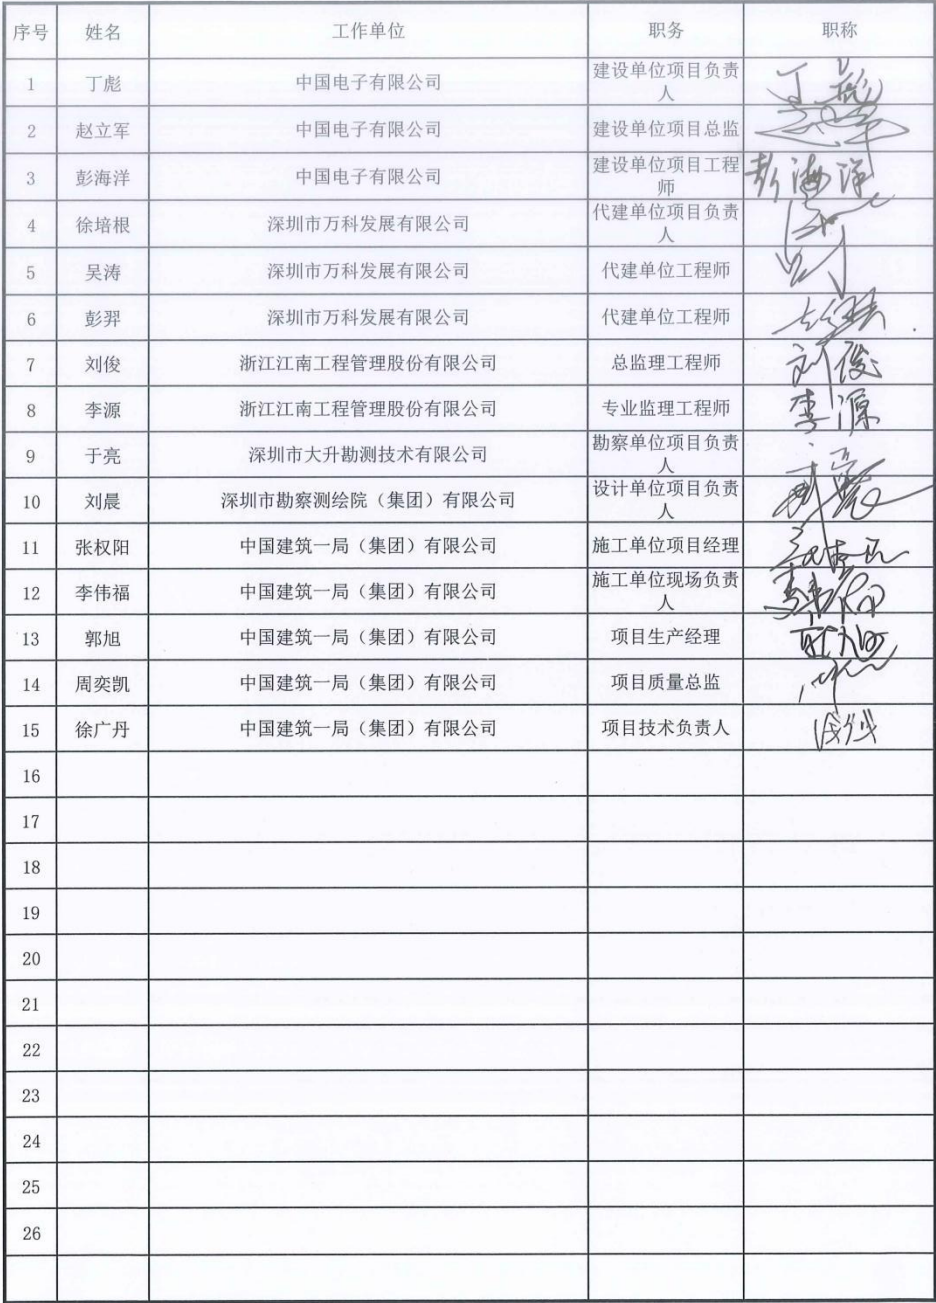 序号 姓名 工作单位 职务 职称
1 丁彪 中国电子有限公司 建设单位项目负责
人
2 赵立军 中国电子有限公司 建设单位项目总监
3 彭海洋 中国电子有限公司 建设单位项目工程
师 彭海洋
4 徐培根 深圳市万科发展有限公司 代建单位项目负责
人
5 吴涛 深圳市万科发展有限公司 代建单位工程师
6 彭羿 深圳市万科发展有限公司 代建单位工程师
7 刘俊 浙江江南工程管理股份有限公司 总监理工程师 刘俊
8 李源 浙江江南工程管理股份有限公司 专业监理工程师 李源
9 于亮 深圳市大升勘测技术有限公司 勘察单位项目负责
人
10 刘晨 深圳市勘察测绘院（集团）有限公司 设计单位项目负责
人
11 张权阳 中国建筑一局（集团）有限公司 施工单位项目经理
12 李伟福 中国建筑一局（集团）有限公司 施工单位现场负责
人
13 郭旭 中国建筑一局（集团）有限公司 项目生产经理
14 周奕凯 中国建筑一局（集团）有限公司 项目质量总监
15 徐广丹 中国建筑一局（集团）有限公司 项目技术负责人
16
17
18
19
20
21
22
23
24
25
26